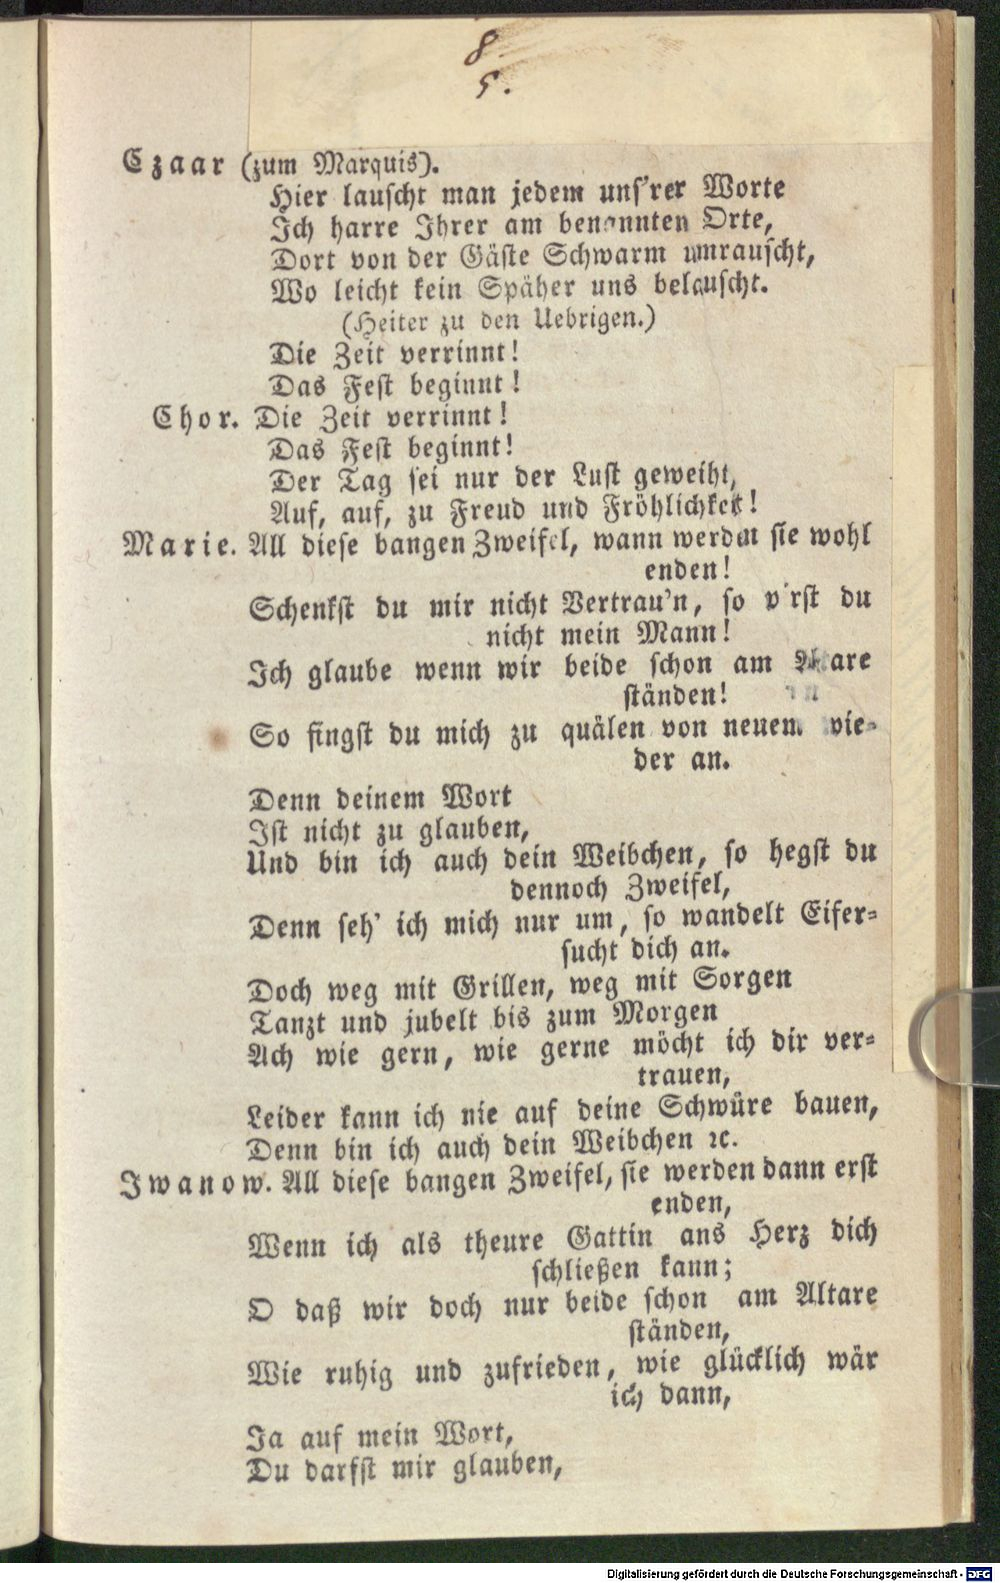 8.
5.
Czaar (zum Marquis).
Hier lauscht man jedem uns'rer Worte
Ich harre Ihrer am benannten Orte,
Dort von der Gäste Schwarm umrauscht,
Wo leicht kein Späher uns belauscht.
(Heiter zu den Uebrigen.)
Die Zeit verrinnt!
Das Fest beginnt!
Chor. Die Zeit verrinnt!
Das Fest beginnt!
Der Tag sei nur der Lust geweiht,
Auf, auf, zu Freud und Fröhlichkeit!
Marie. All diese bangen Zweifel, wann werden sie wohl
enden!
Schenkst du mir nicht Vertrau'n, so wirst du
nicht mein Mann!
Ich glaube wenn wir beide schon am Altare
ständen!
So fingst du mich zu quälen von neuem wie-
der an.
Denn deinem Wort
Ist nicht zu glauben,
Und bin ich auch dein Weibchen, so hegst du
dennoch Zweifel,
Denn seh' ich mich nur um, so wandelt Eifer-
sucht dich an.
Doch weg mit Grillen, weg mit Sorgen
Tanzt und jubelt bis zum Morgen
Ach wie gern, wie gerne möcht ich dir ver-
trauen,
Leider kann ich nie auf deine Schwüre bauen,
Denn bin ich auch dein Weibchen ꝛc.
Iwanow. All diese bangen Zweifel, sie werden dann erst
enden,
Wenn ich als theure Gattin ans Herz dich
schließen kann;
O daß wir doch nur beide schon am Altare
ständen,
Wie ruhig und zufrieden, wie glücklich wär
ich dann,
Ja auf mein Wort,
Du darfst mir glauben,
Digitalisierung gefördert durch die Deutsche Forschungsgemeinschaft - DFG